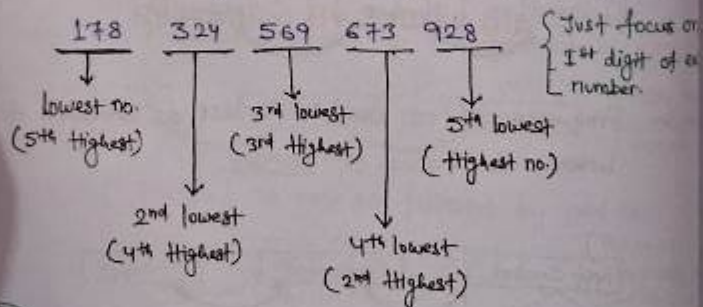 178 324 569 673 928
Just focus on
Ist digit of
number.
lowest no.
(5th Highest)
2nd lowest
(4th Highest)
3rd lowest
(3rd Highest)
4th lowest
(2nd Highest)
5th lowest
(Highest no.)